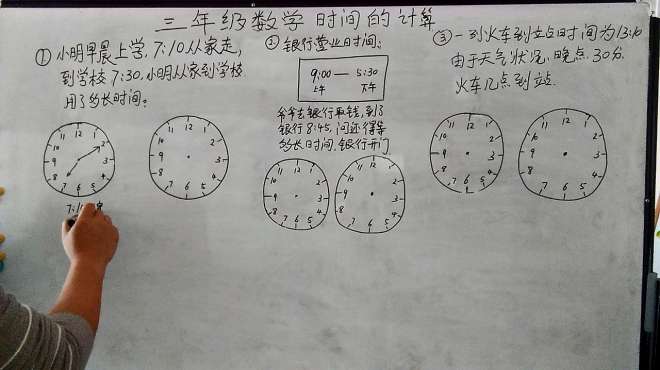 三年级数学 时间的计算
①小明早晨上学,7:10从家走,
到学校7:30,小明从家到学校
用了多长时间。
②银行营业日时间:
9:00 — 5:30
上午 下午
爷爷去银行取钱,到了
银行8:45,问还得等
多长时间,银行开门
③一列火车到站点时间为13:10
由于天气状况,晚点30分.
火车几点到站.
12 1 2 3 4 5 6 7 8 9 10 11
12 1 2 3 4 5 6 7 8 9 10 11
12 1 2 3 4 5 6 7 8 9 10 11
12 1 2 3 4 5 6 7 8 9 10 11
12 1 2 3 4 5 6 7 8 9 10 11
12 1 2 3 4 5 6 7 8 9 10 11